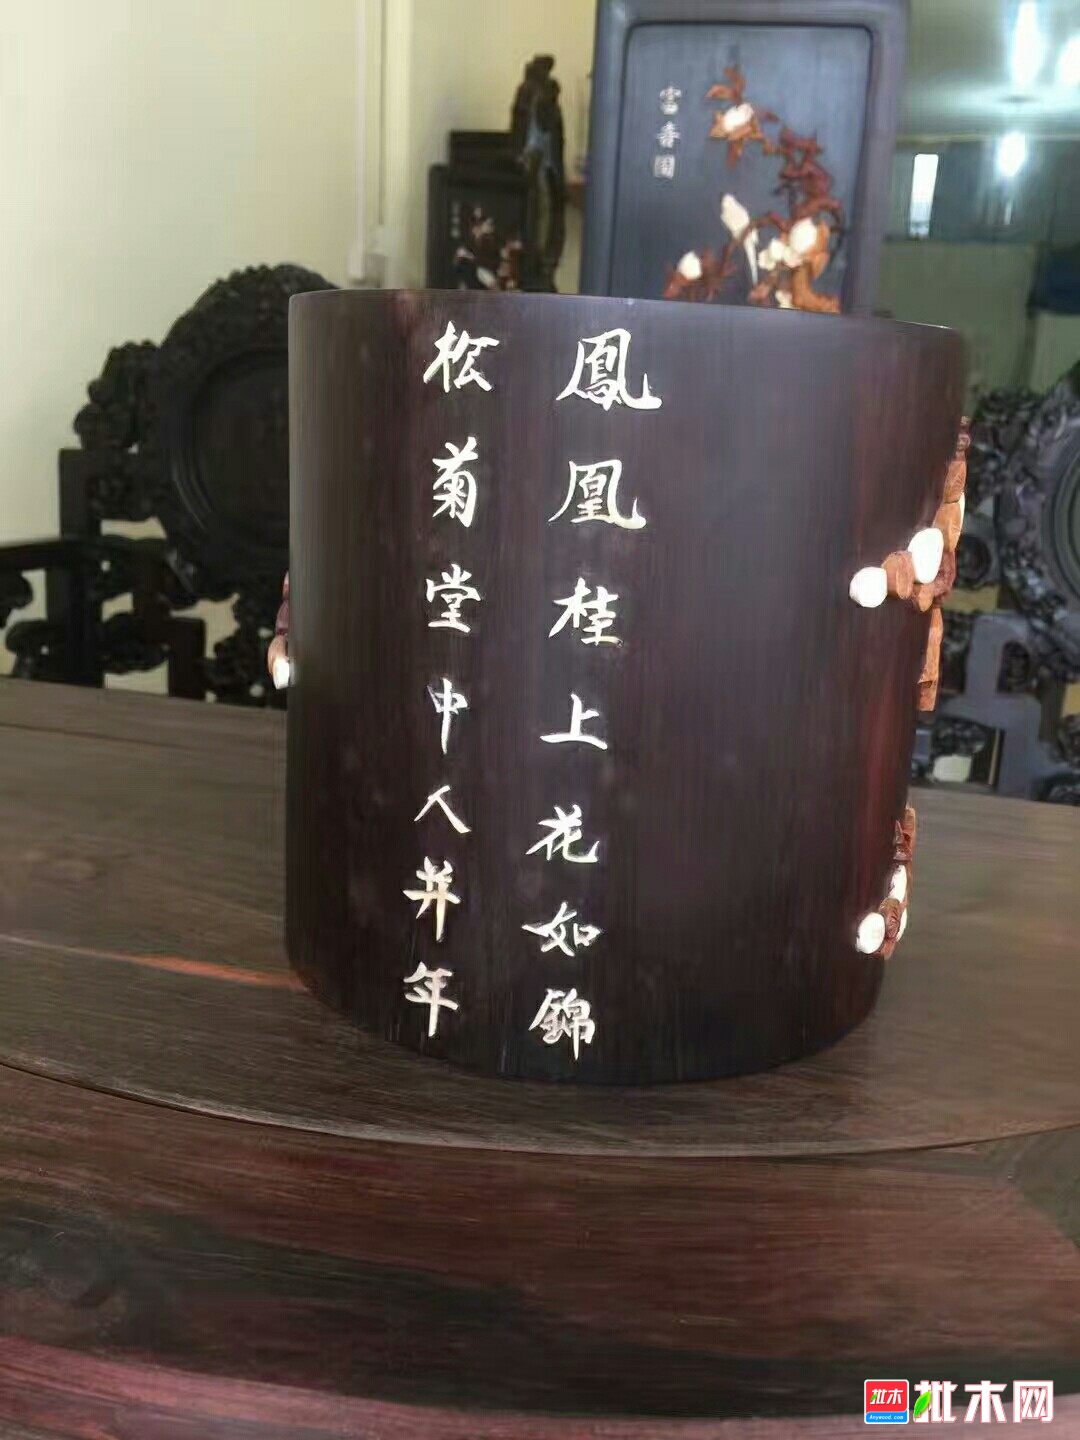 鳳凰桂上花如錦
松菊堂中人并年
富壽圖
批木
Anywood.com
批木网